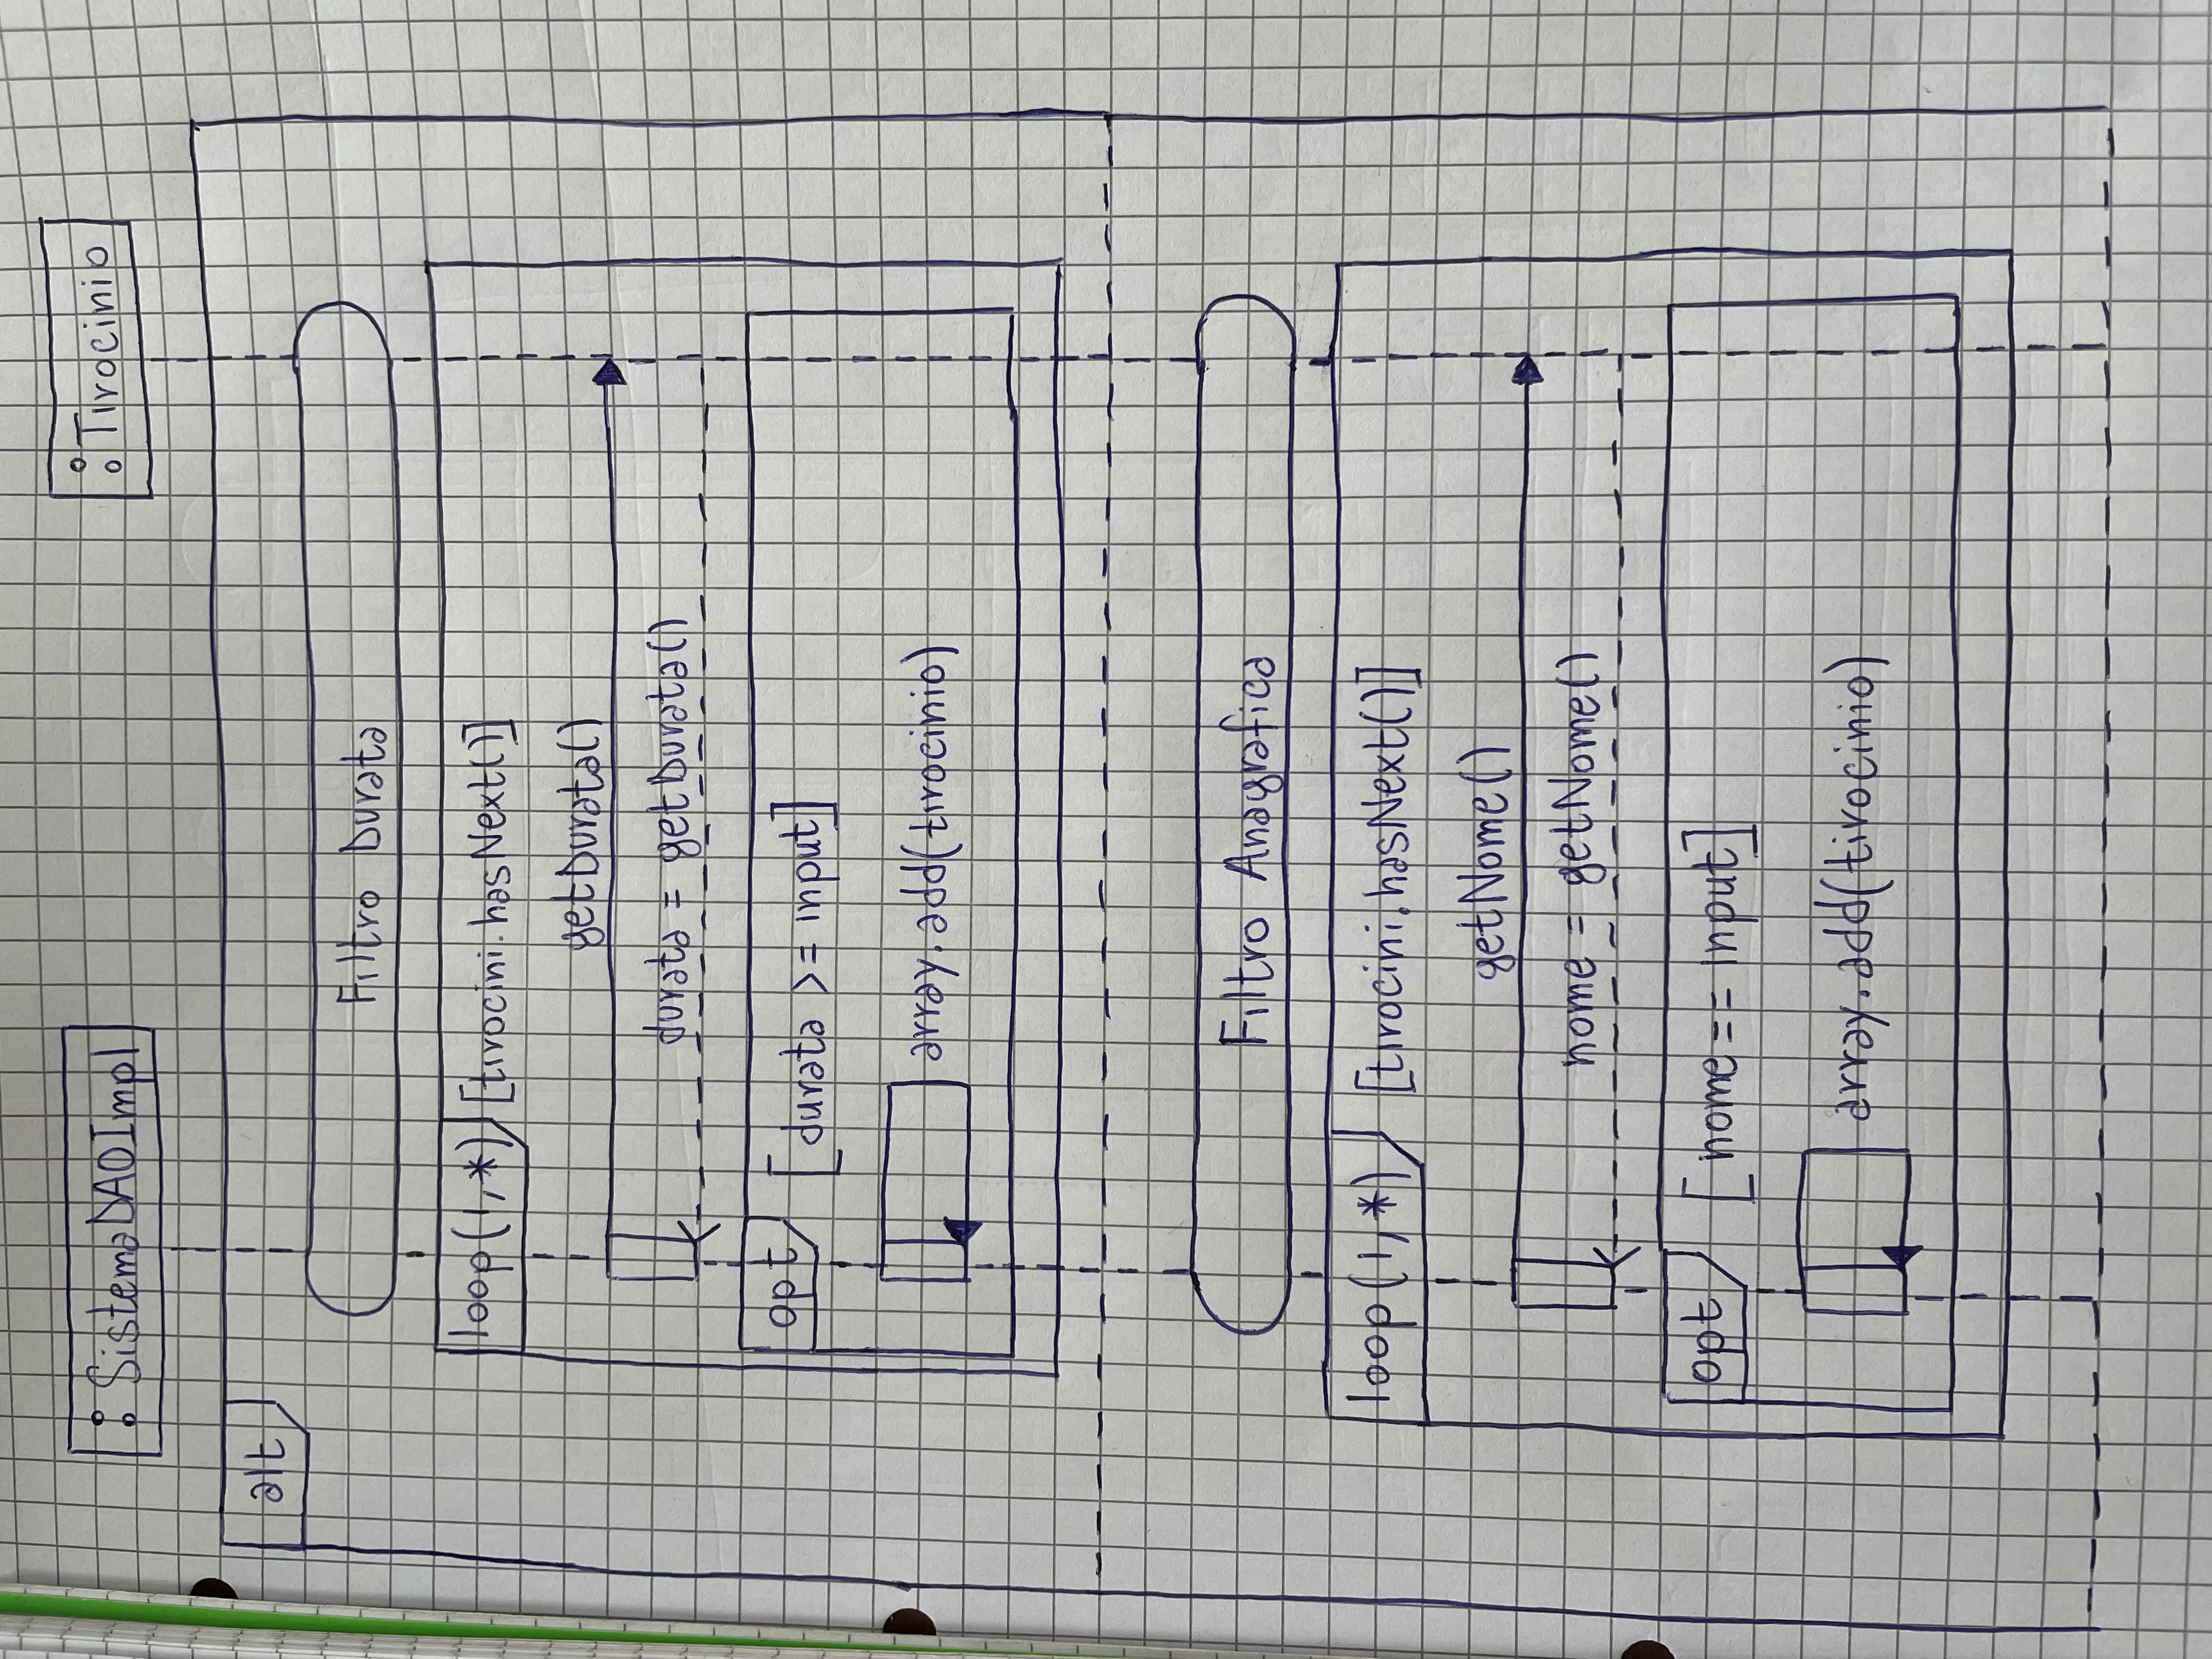 : SistemaDAOImpl
: Tirocinio
alt
Filtro Durata
loop(1,*) [tirocini.hasNext()]
getDurata()
durata = getDurata()
opt [durata >= input]
array.add(tirocinio)
Filtro Anagrafica
loop(1,*) [tirocini.hasNext()]
getNome()
nome = getNome()
opt [nome == input]
array.add(tirocinio)